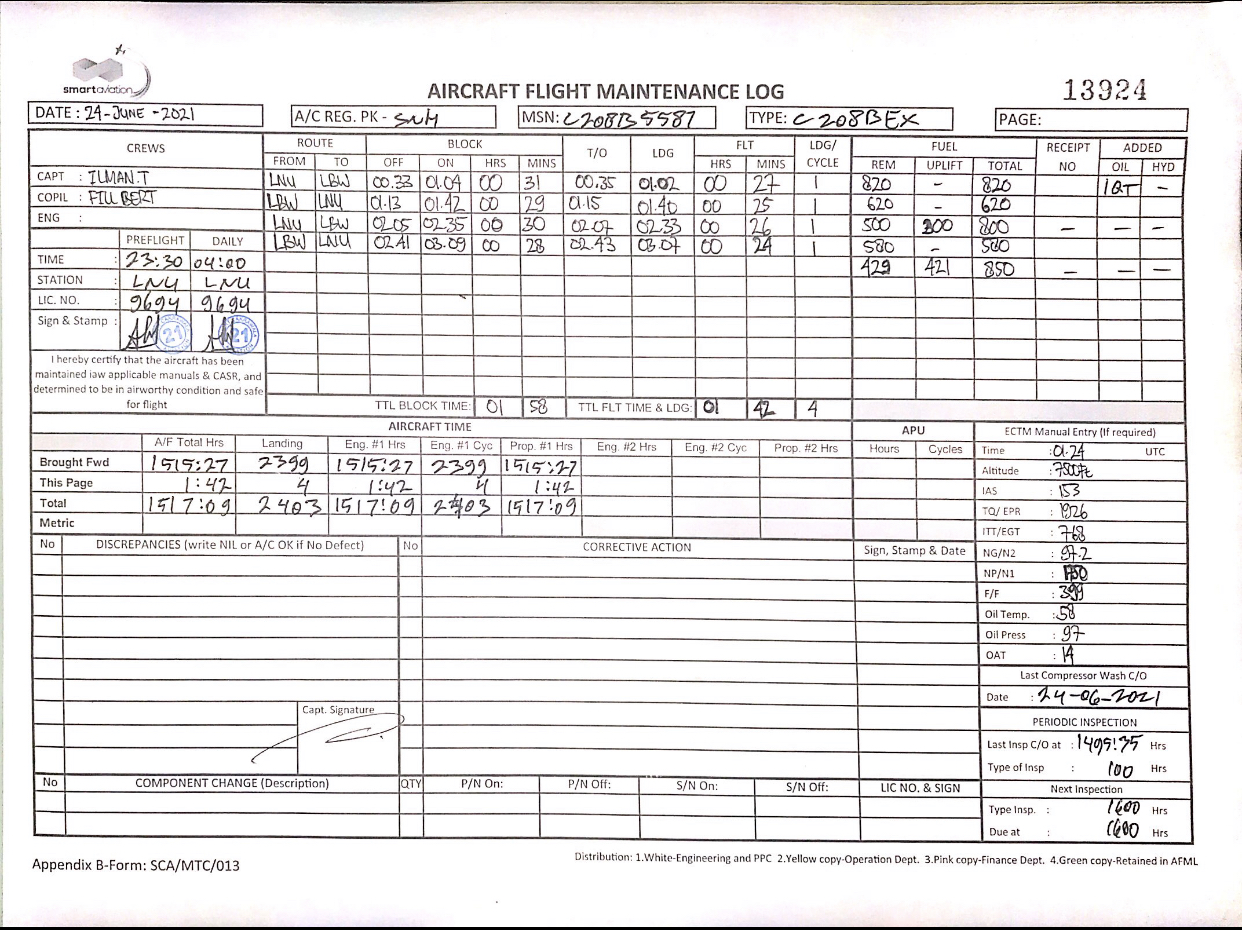 smartaviation
AIRCRAFT FLIGHT MAINTENANCE LOG
13924
DATE : 24-JUNE-2021 A/C REG. PK - SNH MSN: C208B5587 TYPE: C208BEX PAGE:
CREWS ROUTE BLOCK T/O LDG FLT LDG/ CYCLE FUEL RECEIPT NO ADDED
FROM TO OFF ON HRS MINS HRS MINS REM UPLIFT TOTAL OIL HYD
CAPT : ILMAN.T LNU LBW 00.33 01.04 00 31 00.35 01.02 00 27 1 820 - 820 1QT -
COPIL : FILLBERT LBW LNU 01.13 01.42 00 29 01.15 01.40 00 25 1 620 - 620
ENG : LNU LBW 02.05 02.35 00 30 02.07 02.33 00 26 1 500 300 800 - - -
PREFLIGHT DAILY LBW LNU 02.41 03.09 00 28 02.43 03.07 00 24 1 580 - 580
TIME : 23:30 04:00 429 421 850 - - -
STATION : LNU LNU
LIC. NO. : 9694 9694
Sign & Stamp : 21 21
I hereby certify that the aircraft has been
maintained iaw applicable manuals & CASR, and
determined to be in airworthy condition and safe
for flight
TTL BLOCK TIME: 01 58 TTL FLT TIME & LDG: 01 42 4
AIRCRAFT TIME APU ECTM Manual Entry (If required)
A/F Total Hrs Landing Eng. #1 Hrs Eng. #1 Cyc Prop. #1 Hrs Eng. #2 Hrs Eng. #2 Cyc Prop. #2 Hrs Hours Cycles
Time : 01.24 UTC
Brought Fwd 1515:27 2399 1515:27 2399 1515:27
Altitude : 7500ft
This Page 1:42 4 1:42 4 1:42
IAS : 153
Total 1517:09 2403 1517:09 2403 1517:09
TQ/ EPR : 1926
Metric
ITT/EGT : 768
No DISCREPANCIES (write NIL or A/C OK if No Defect) No CORRECTIVE ACTION Sign, Stamp & Date
NG/N2 : 97.2
NP/N1 : 1750
F/F : 399
Oil Temp. : 58
Oil Press : 97
OAT : 14
Last Compressor Wash C/O
Date : 24-06-2021
Capt. Signature
PERIODIC INSPECTION
Last Insp C/O at : 1499:35 Hrs
Type of Insp : 100 Hrs
No COMPONENT CHANGE (Description) QTY P/N On: P/N Off: S/N On: S/N Off: LIC NO. & SIGN
Next Inspection
Type Insp. : 1600 Hrs
Due at : 1600 Hrs
Appendix B-Form: SCA/MTC/013
Distribution: 1.White-Engineering and PPC 2.Yellow copy-Operation Dept. 3.Pink copy-Finance Dept. 4.Green copy-Retained in AFML